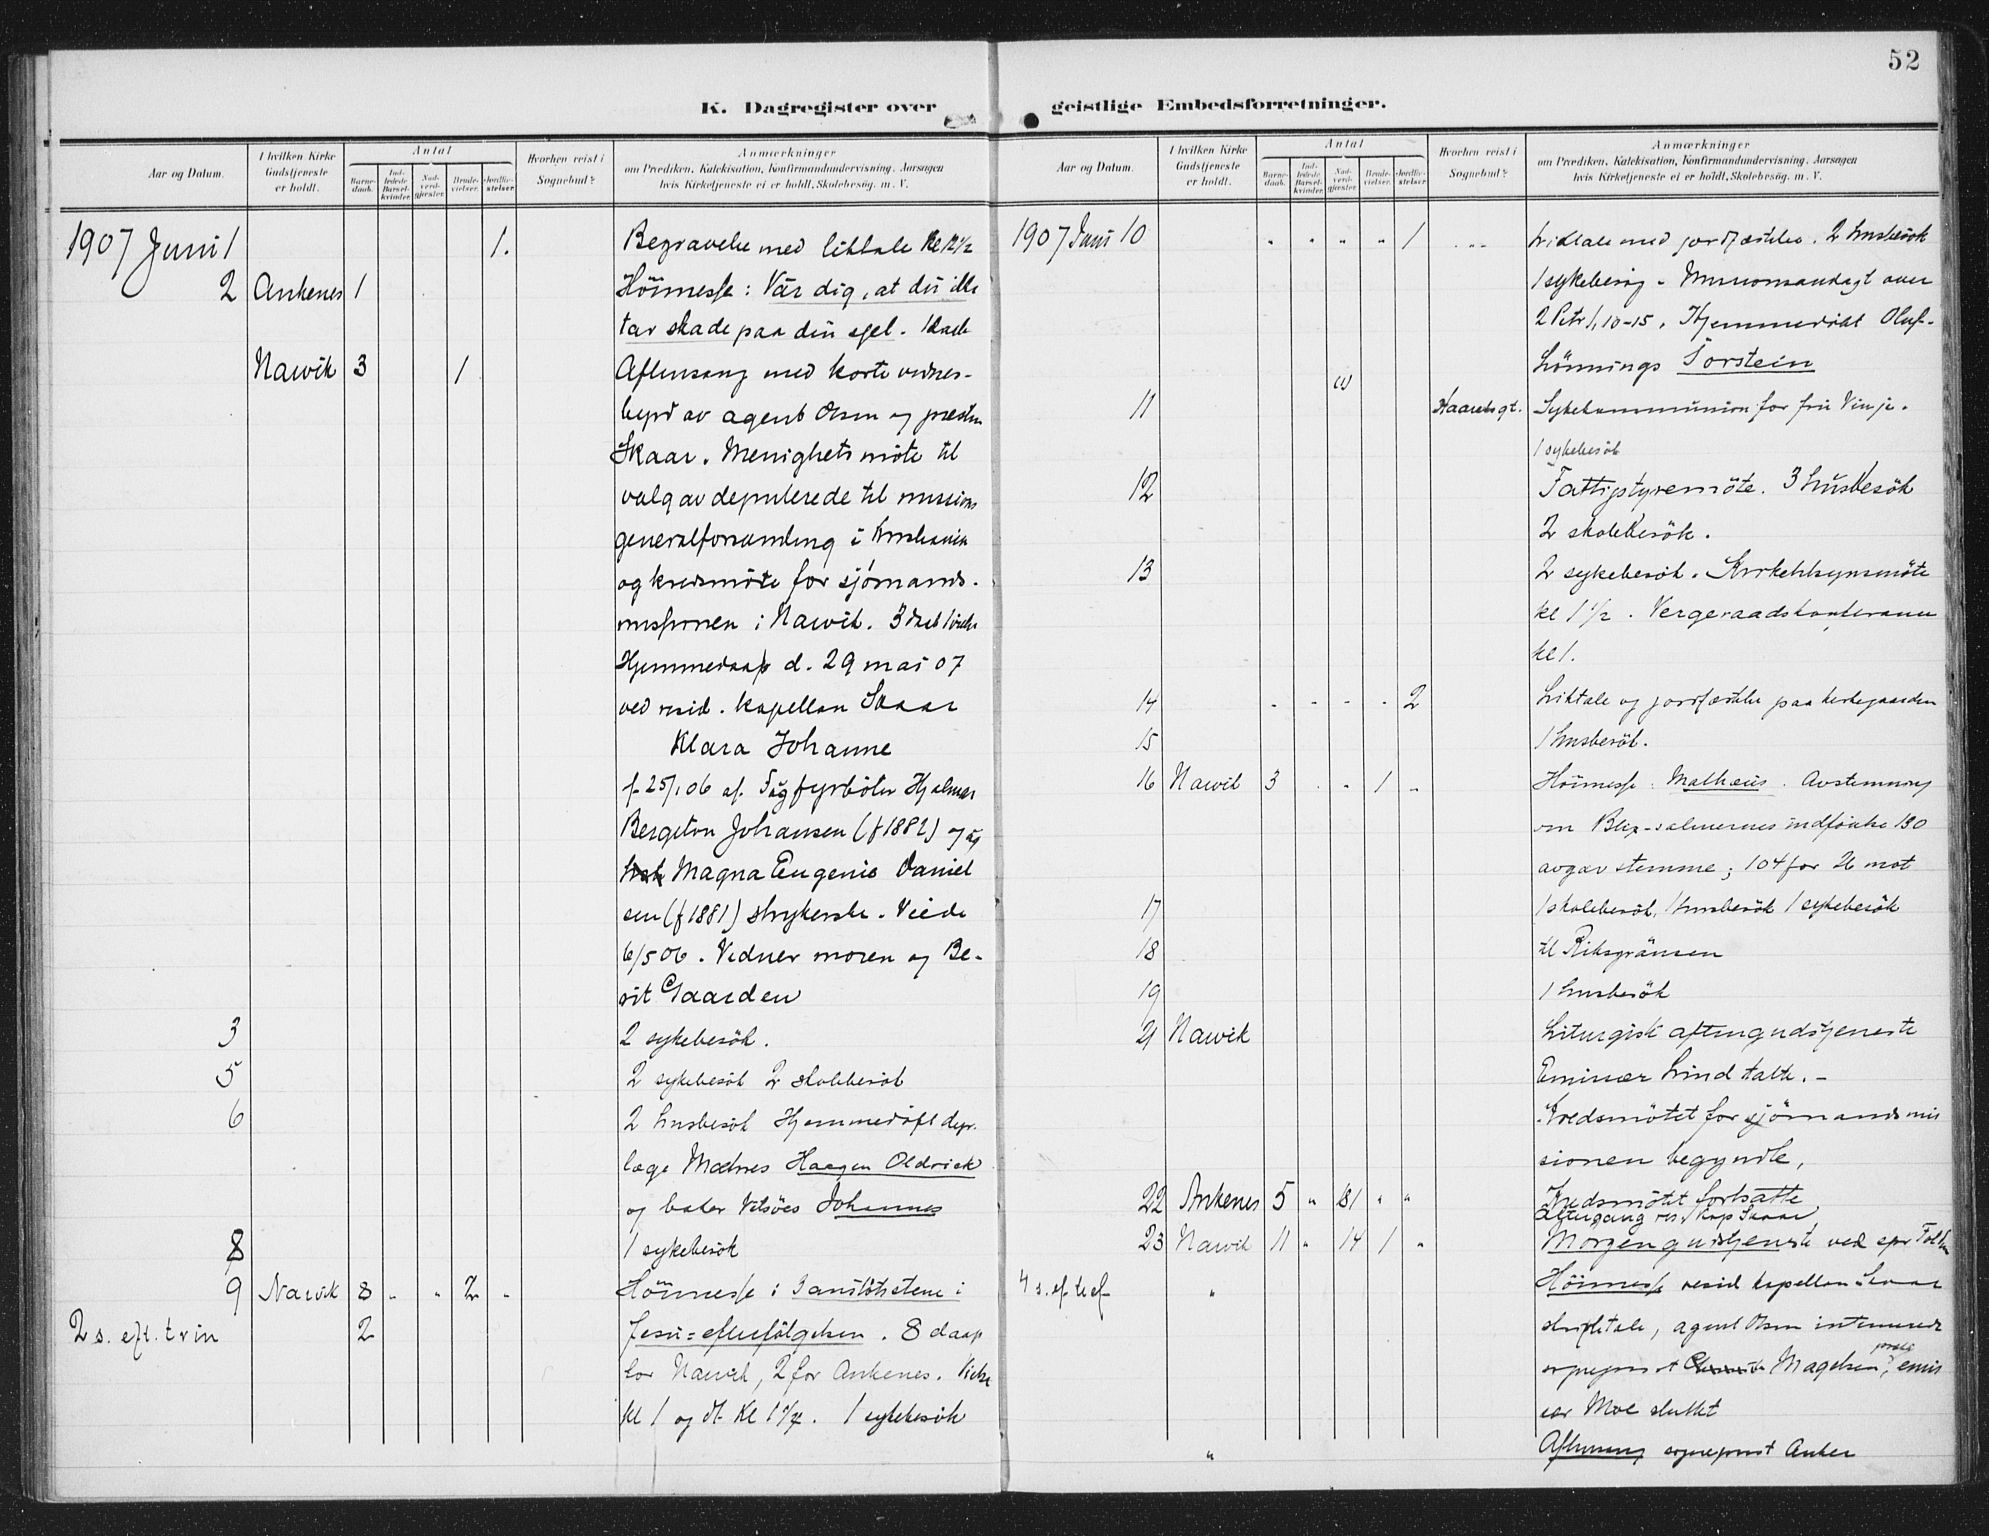 52
K. Dagregister over
Aar og Datum.
I hvilken Kirke Gudstjeneste er holdt.
Antal
Barne-daab.
Ind-ledede Barsel-kvinder.
Nad-verd-gjæster.
Brude-vielser.
Jordfæ-stelser.
Hvorhen reist i Sognebud?
Anmærkninger
om Prædiken, Katekisation, Konfirmandundervisning, Aarsagen
hvis Kirketjeneste ei er holdt, Skolebesøg, m. V.
1907 Juni 1 1. Begravelse med liktale kl 12 1/2
2 Ankenes 1 Höimesse: Var dig, at du ikke
tar skade paa din sjel. 1 daab
Narvik 3 1 Aftensang med korte vidnes-
byrd av agent Olsen og presten
Skaar. Menighets möte til
valg av deputerede til missions
generalforsamling i Kristiania
og kredsmöte for sjömands-
missionen i Narvik. 3 daab 1 vielse
Hjemmedaap d. 29 mai 07
ved resid. kapellan Skaar
Klara Johanne
f. 25/1 06 af Togfyrböter Hjalmar
Bergiton Johansen (f 1882) og
Magna Eugenie Daniel
sen (f 1881) strykerske. Viede
6/5 06. Vidner moren og Be-
rit Gaarden
3 2 sykebesök.
5 2 sykebesök 2 skolebesök
6 2 husbesök Hjemmedöft depr.
læge Mælnes Haagen Oldrick
og baker Vitsöes Johannes
8 1 sykebesök
9 Narvik 8 " " 2 " Höimesse: Banstötstene i
2 s. eft. trin 2 Jesu=efterfölgelsen. 8 daap
for Narvik, 2 for Ankenes. Vielse
kl 1 og dt. kl 1 1/2. 1 sykebesök
geistlige Embedsforretninger.
Aar og Datum.
I hvilken Kirke Gudstjeneste er holdt.
Antal
Barne-daab.
Ind-ledede Barsel-kvinder.
Nad-verd-gjæster.
Brude-vielser.
Jordfæ-stelser.
Hvorhen reist i Sognebud?
Anmærkninger
om Prædiken, Katekisation, Konfirmandundervisning, Aarsagen
hvis Kirketjeneste ei er holdt, Skolebesøg, m. V.
1907 Juni 10 " " " " 1 " Liktale med jordfæstelse. 2 husbesök
1 sykebesög - Missionsandagt over
2 Petr 1, 10-15. Hjemmedöbt Oluf
Lönnings Torstein
11 Sykekommunion for fru Vinje.
1 sykebesök
12 Fattigstyremöte. 3 husbesök
2 skolebesök.
13 2 sykebesök. Kirketilsynsmöte
kl 1 1/2. Vergeraadskonferanse
kl 1.
14 - - - - 2 Liktale og jordfæstelse paa kirkegaarden
15 1 husbesök.
16 Narvik 3 " " 1 " Höimesse: Mathæus. Avstemning
om Blix-salmernes indförelse 130
avgav stemme; 104 for 26 mot
17 1 skolebesök, 1 husbesök 1 sykebesök
18 til Riksgränsen
19 1 husbesök
21 Narvik Liturgisk aftengudstjeneste
Emissær Lind talte. -
Kredsmötet for sjömandsmis
sionen begyndte,
22 Ankenes 5 " 81 " " Kredsmötet fortsatte
Altergang res. kap Skaar
23 Narvik 11 " 14 1 " Morgengudstjeneste ved spr
4 s. ef tref " Höimesse resid kapellan Skaar
skriftetale, agent Olsen
sognepræst Magelsen, emis
sær Moe sluttet
" Aftensang sogneprest Anker